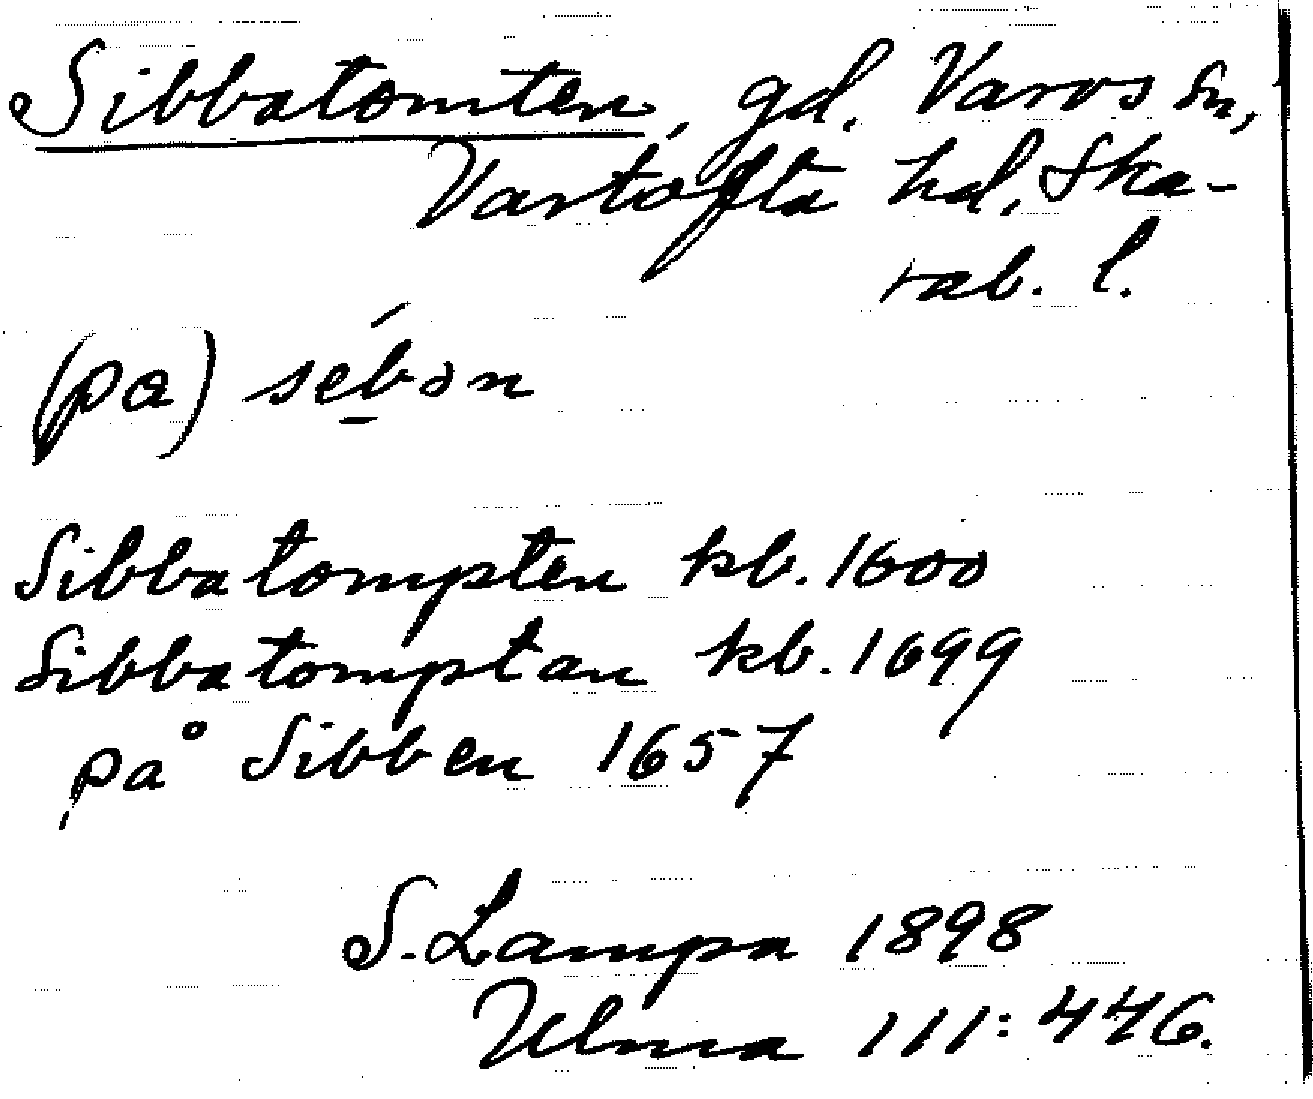 Sibbatomten, gd. Varvs sn,
Vartofta hd. Ska-
rab. l.
(pa) sébon
Sibbatompten kb. 1600
Sibbatomptan kb. 1699
på Sibben 1657
S. Lampa 1898
Ulma 111:446.